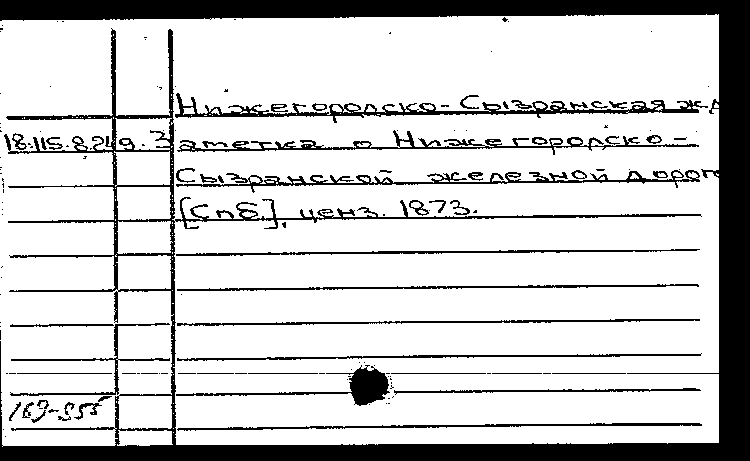 Нижегородско-Сызранская жд
18.115.8.249. Заметка о Нижегородско-
Сызранской железной дорог
[Спб.], ценз. 1873.
169-955